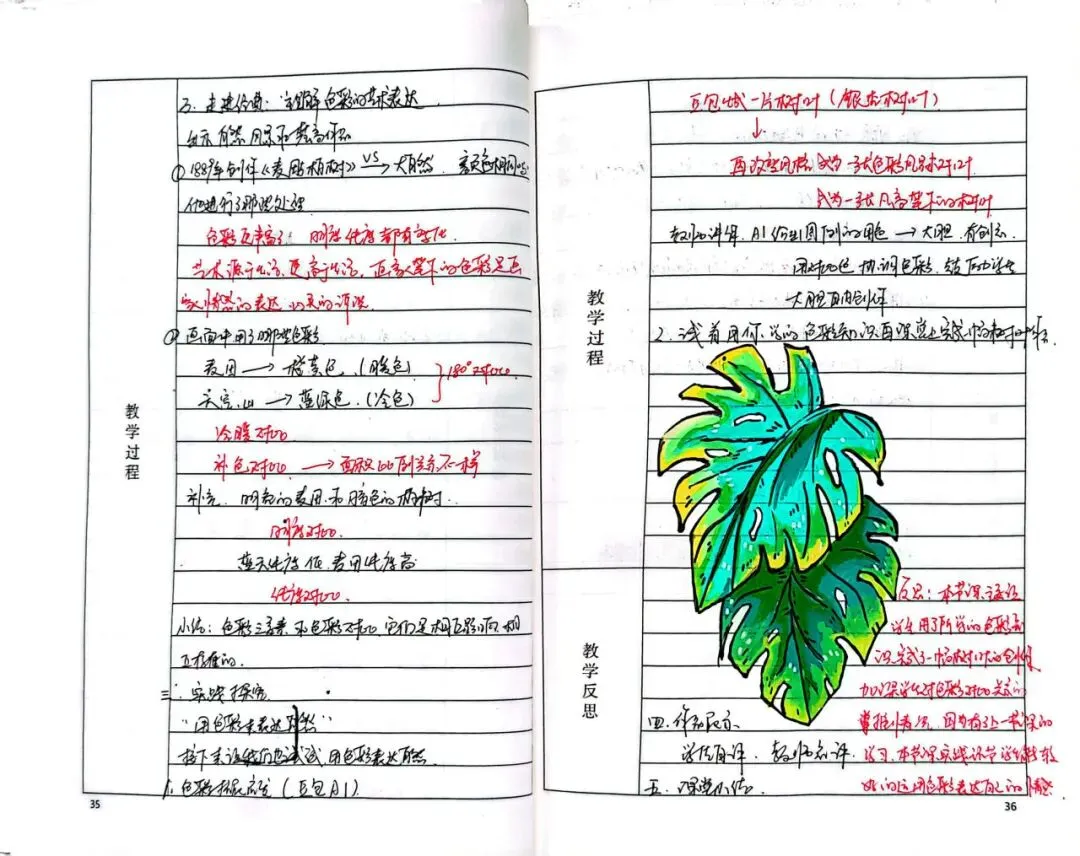 教学过程
3. 走进绘画：了解色彩的艺术表达
出示自然风景和梵高作品
①1889年创作《麦田柏树》VS→大自然 颜色相同吗
他进行了哪些处理
色彩更丰富了 明度纯度都有变化
艺术源于生活，更高于生活，画家笔下的色彩是画
家情感的表达
②画面中用了哪些色彩
麦田→橙黄色（暖色）
天空、山→蓝绿色（冷色）
}180°对比
冷暖对比
补色对比→面积比例关系不一样
补充 明亮的麦田和暗色的柏树
明度对比
蓝天纯度低 麦田纯度高
纯度对比
小结：色彩三要素和色彩对比 它们是相互影响 相
互存在的
三、实践探究
"用色彩来表达自然"
接下来让我们也试试 用色彩表达自然
1. 色彩拓展启发（豆包AI）
35
教学过程
豆包生成一片树叶（银杏树叶）
↓
再改变风格 成为一张色彩风景树叶
成为一张凡高笔下的树叶
教师讲解 AI仿生图例的用色→大胆 有创意
用对比色 协调色彩
大胆画面创作
2. 试着用你学的色彩知识再课堂上完成一幅树叶
教学反思
反思：本节课通过
学生用了所学的色彩知
识完成了一幅树叶的创作
加深学生对色彩对比关系的
掌握 因为有上一节课的
学习 本节课实践环节学生能较
好的运用色彩表达自己的情感
四、作品展示
学生自评 教师点评
五、课堂小结
36